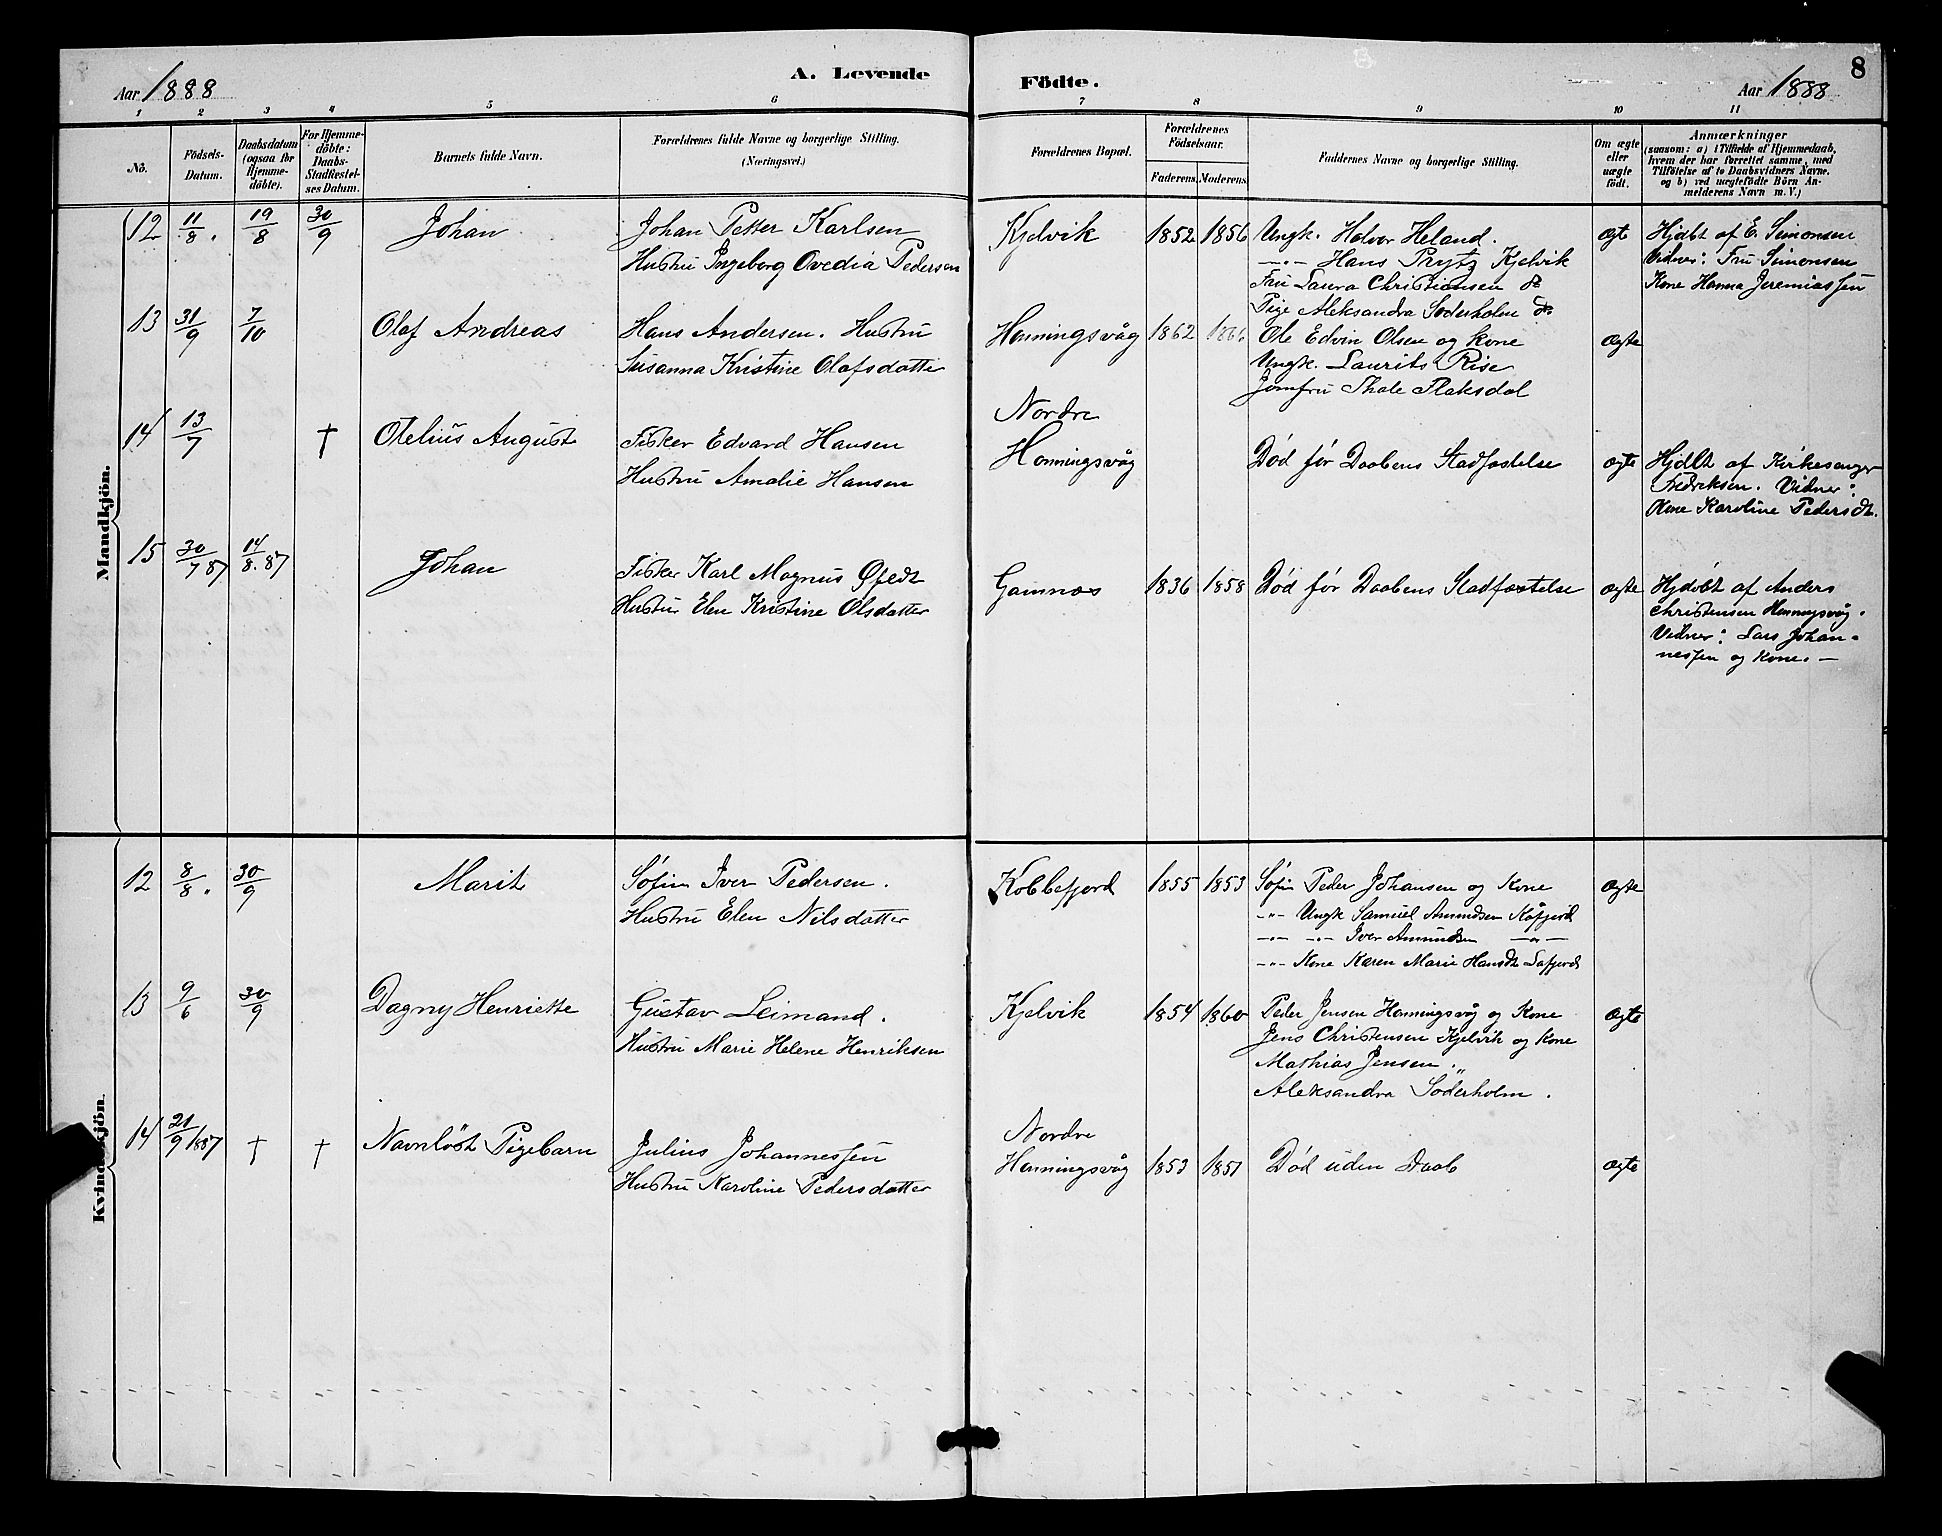 8
Aar 1888
A. Levende
Födte.
Aar 1888
1 2 3 4 5 6 7 8 9 10 11
No.
Födsels-Datum.
Daabsdatum (ogsaa for Hjemme-döbte).
For Hjemme-döbte: Daabs-Stadfæstel-ses Datum.
Barnets fulde Navn.
Forældrenes fulde Navne og borgerlige Stilling.
(Næringsvei.)
Forældrenes Bopæl.
Forældrenes Födselsaar.
Faderens. Moderens.
Faddernes Navne og borgerlige Stilling.
Om ægte eller uægte födt.
Anmærkninger
(saasom: a) i Tilfælde af Hjemmedaab,
hvem der har forrettet samme, med
Tilföielse af to Daabsvidners Navne.
og b) ved uægtefödte Börn An-
melderens Navn m. V.)
Mandkjön.
12 11/8. 19/8 30/9 Johan
Johan Petter Karlsen
Hustru Ingeborg Ovedia Pedersen
Kjelvik 1852 1856
Ungk. Halvor Heland.
-"- Hans Prytz Kjelvik
Fru Laura Christiansen do
Pige Aleksandra Söderholm do
ægte
Hjdbt af E. Simonsen
Vidner: Fru Simonsen
Kone Hanna Jeremiassen
13 31/9 7/10 Olaf Andreas
Hans Andersen. Hustru
Susanna Kristine Olafsdatter
Honningsvåg 1862
Ole Edvin Olsen og kone
Ungk. Laurits Rise
Jomfru Thale Flaksdal
ægte
14 13/7 † Otelius August
Fisker Edvard Hansen
Hustru Amalie Hansen
Nordre
Honningsvåg
Död før Daabens Stadfæstelse
ægte
Hjdbt af Kirkesanger
Fredriksen. Vidner:
Kone Karoline Pedersdt.
15 30/7 87 14/8. 87 Johan
Fisker Karl Magnus Øfedt
Hustru Elen Kristine Olsdatter
Gamnæs 1836 1858
Död før Daabens Stadfæstelse
ægte
Hjdöbt af Anders
Christensen Honningsvåg.
Vidner: Lars Johan-
nessen og Kone. —
Kvindekjön.
12 8/8. 30/9 Marit
Søfin Iver Pedersen.
Hustru Elen Nilsdatter
Kobbefjord 1855 1853
Søfin Peder Johansen og Kone
-"- Ungk Samuel Amundsen Kåfjord
-"- -"- Iver Amundsen -"-
-"- Kone Karen Marie Hansdt
ægte
13 9/6 30/9 Dagny Henriette
Gustav Leimand.
Hustru Marie Helene Henriksen
Kjelvik 1854 1860
Peder Jensen Honningsvåg og Kone
Jens Christensen Kjelvik og Kone
Mathias Jensen.
Aleksandra Söderholm.
ægte
14 21/9 1887 † † Navnløst Pigebarn
Julius Johannessen
Hustru Karoline Pedersdatter
Nordre
Honningsvåg 1853 1851
Død uden Daab
ægte